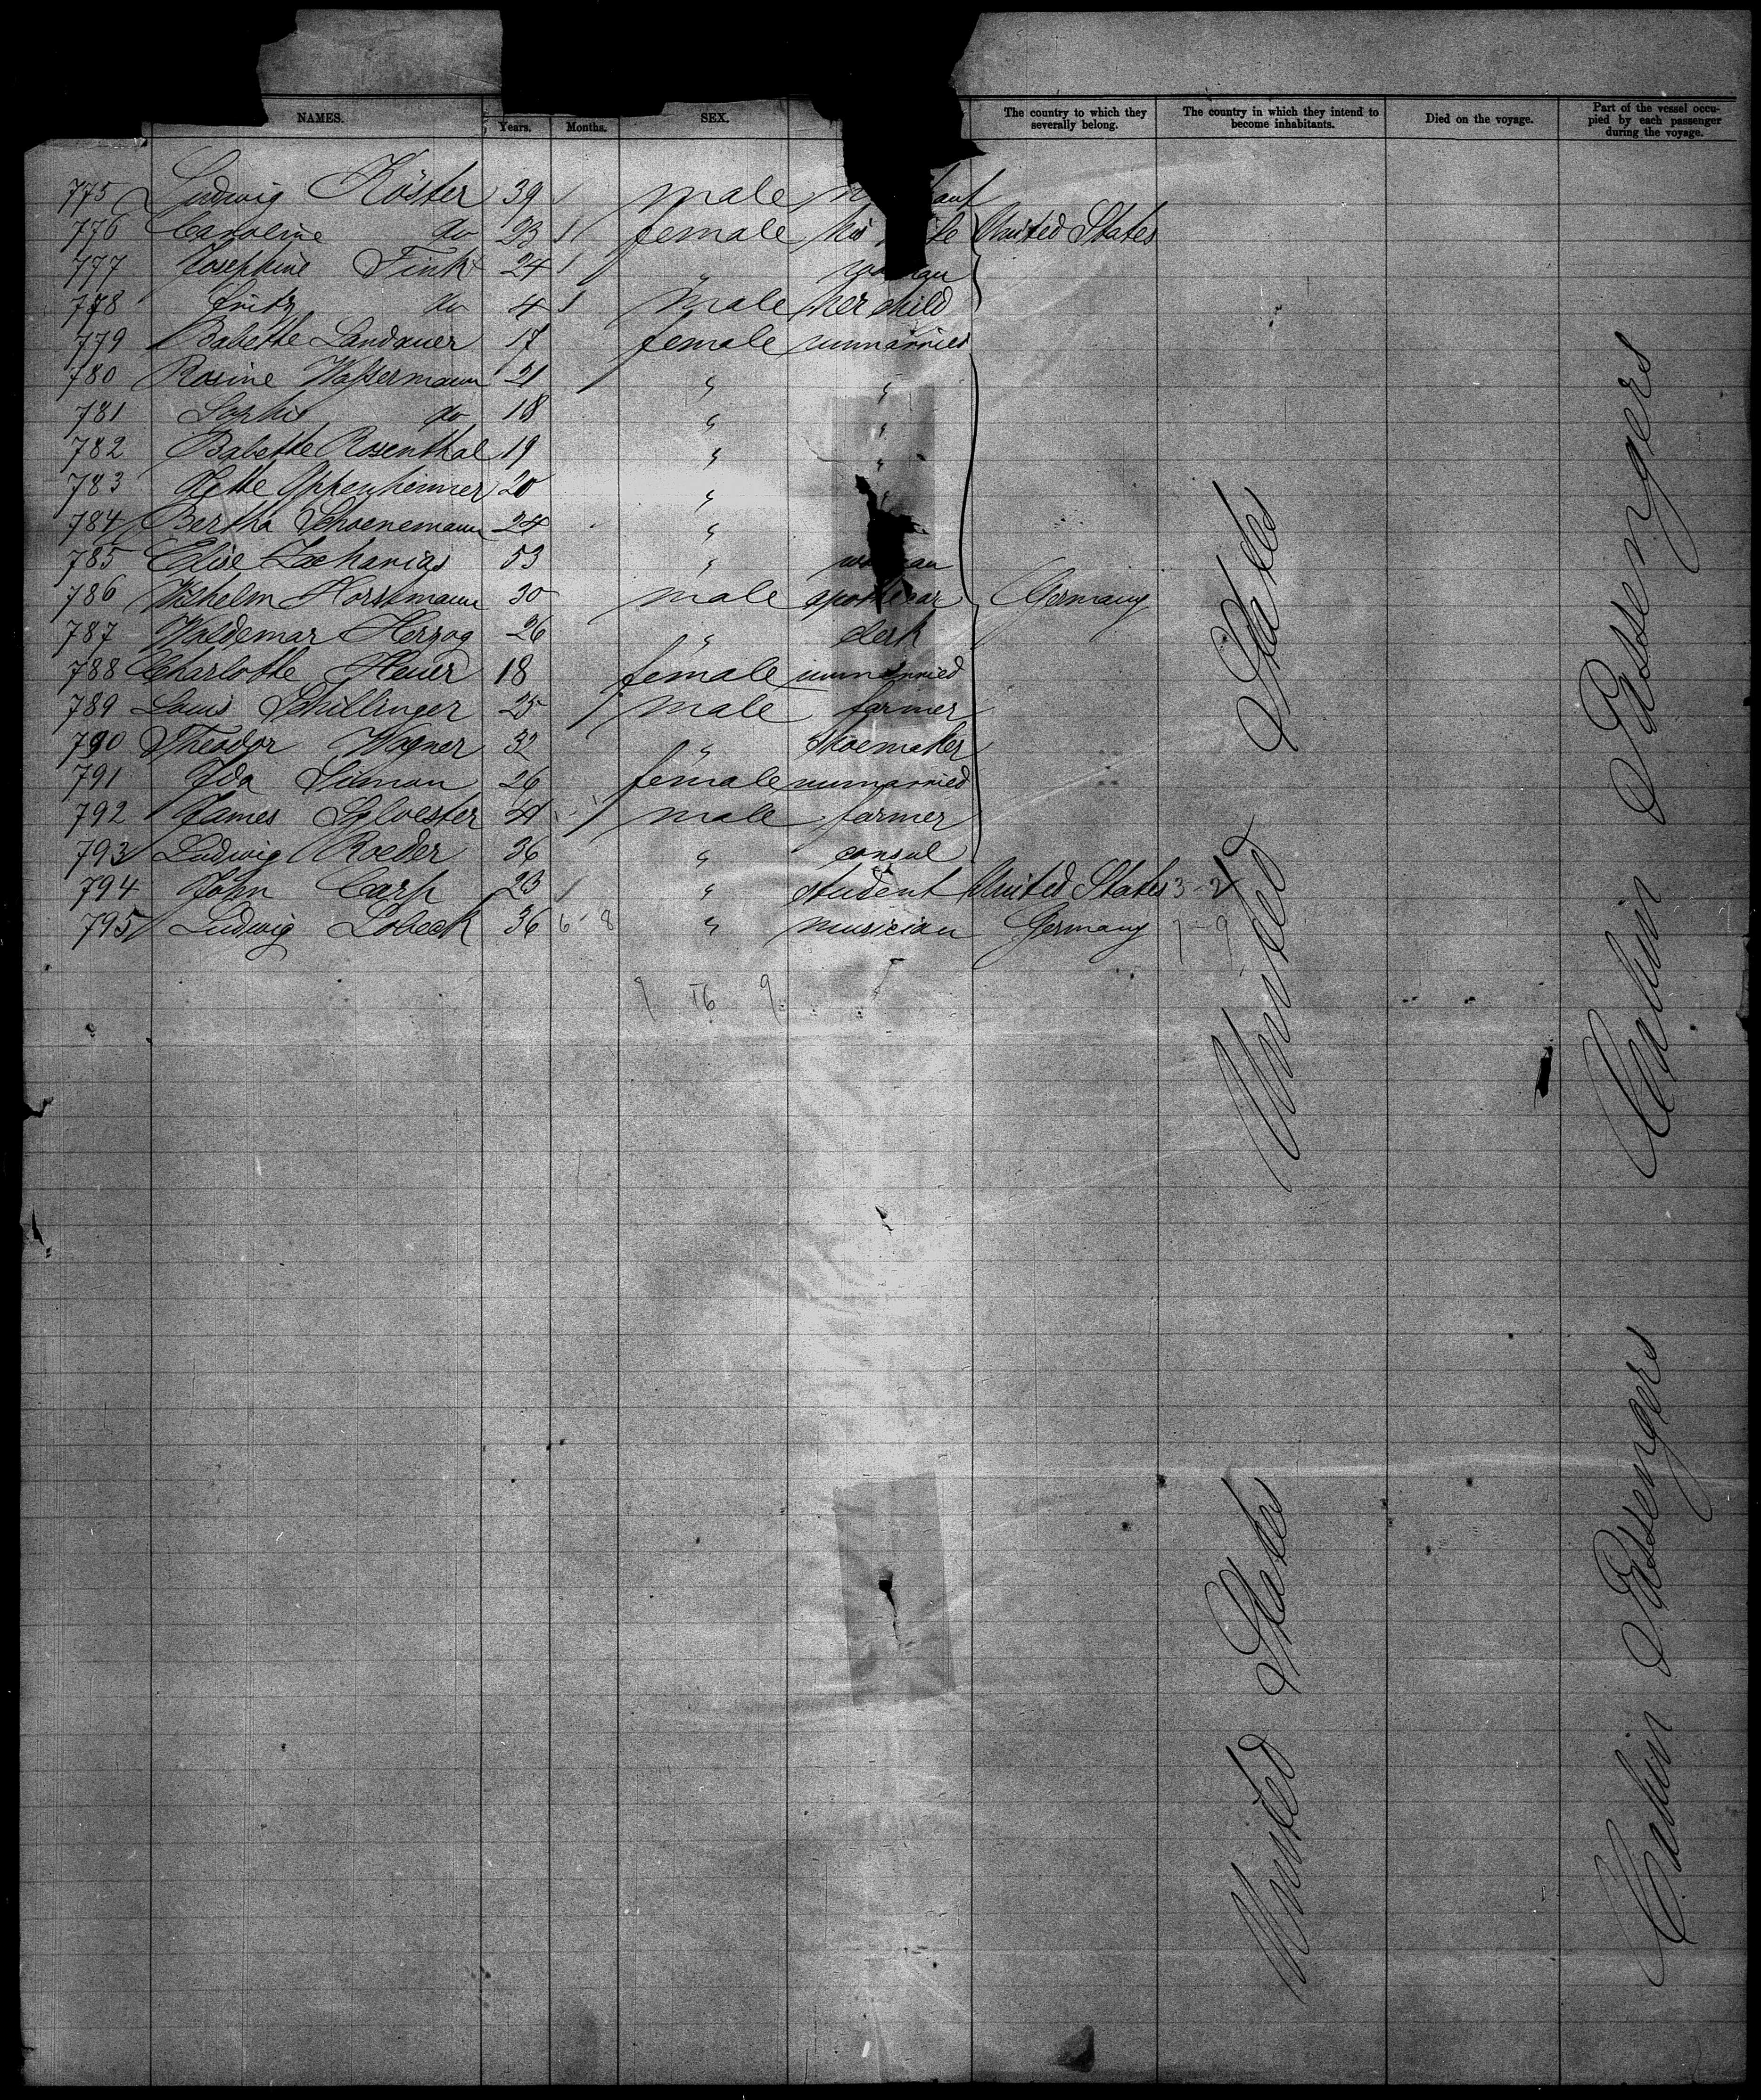 NAMES. Years. Months. SEX. The country to which they severally belong. The country in which they intend to become inhabitants. Died on the voyage. Part of the vessel occupied by each passenger during the voyage.
775 Ludwig Köster 39 male
776 Caroline do 23 female his United States
777 Josephine Fink 24 "
778 Fritz do 4 male her child
779 Babette Landauer 17 female unmarried
780 Rosine Wassermann 21 " "
781 Sophie do 18 " "
782 Babette Rosenthal 19 " "
783 Jette Oppenheimer 20 " "
784 Bertha Schoenemann 24 "
785 Elise Zacharias 53 "
786 Wilhelm Horstmann 30 male Germany
787 Waldemar Herzog 26 " clerk
788 Charlotte Heuer 18 female unmarried
789 Louis Schillinger 25 male farmer
790 Theodor Wagner 32 " shoemaker
791 Ida Simon 26 female unmarried
792 James Sylvester 41 male farmer
793 Ludwig Roeder 36 " consul
794 John Carp 23 " student United States 3-2
795 Ludwig Lobeck 36 6-8 " musician Germany 7-9
9 16 9
United States
Cabin Passengers
United States
Cabin Passengers